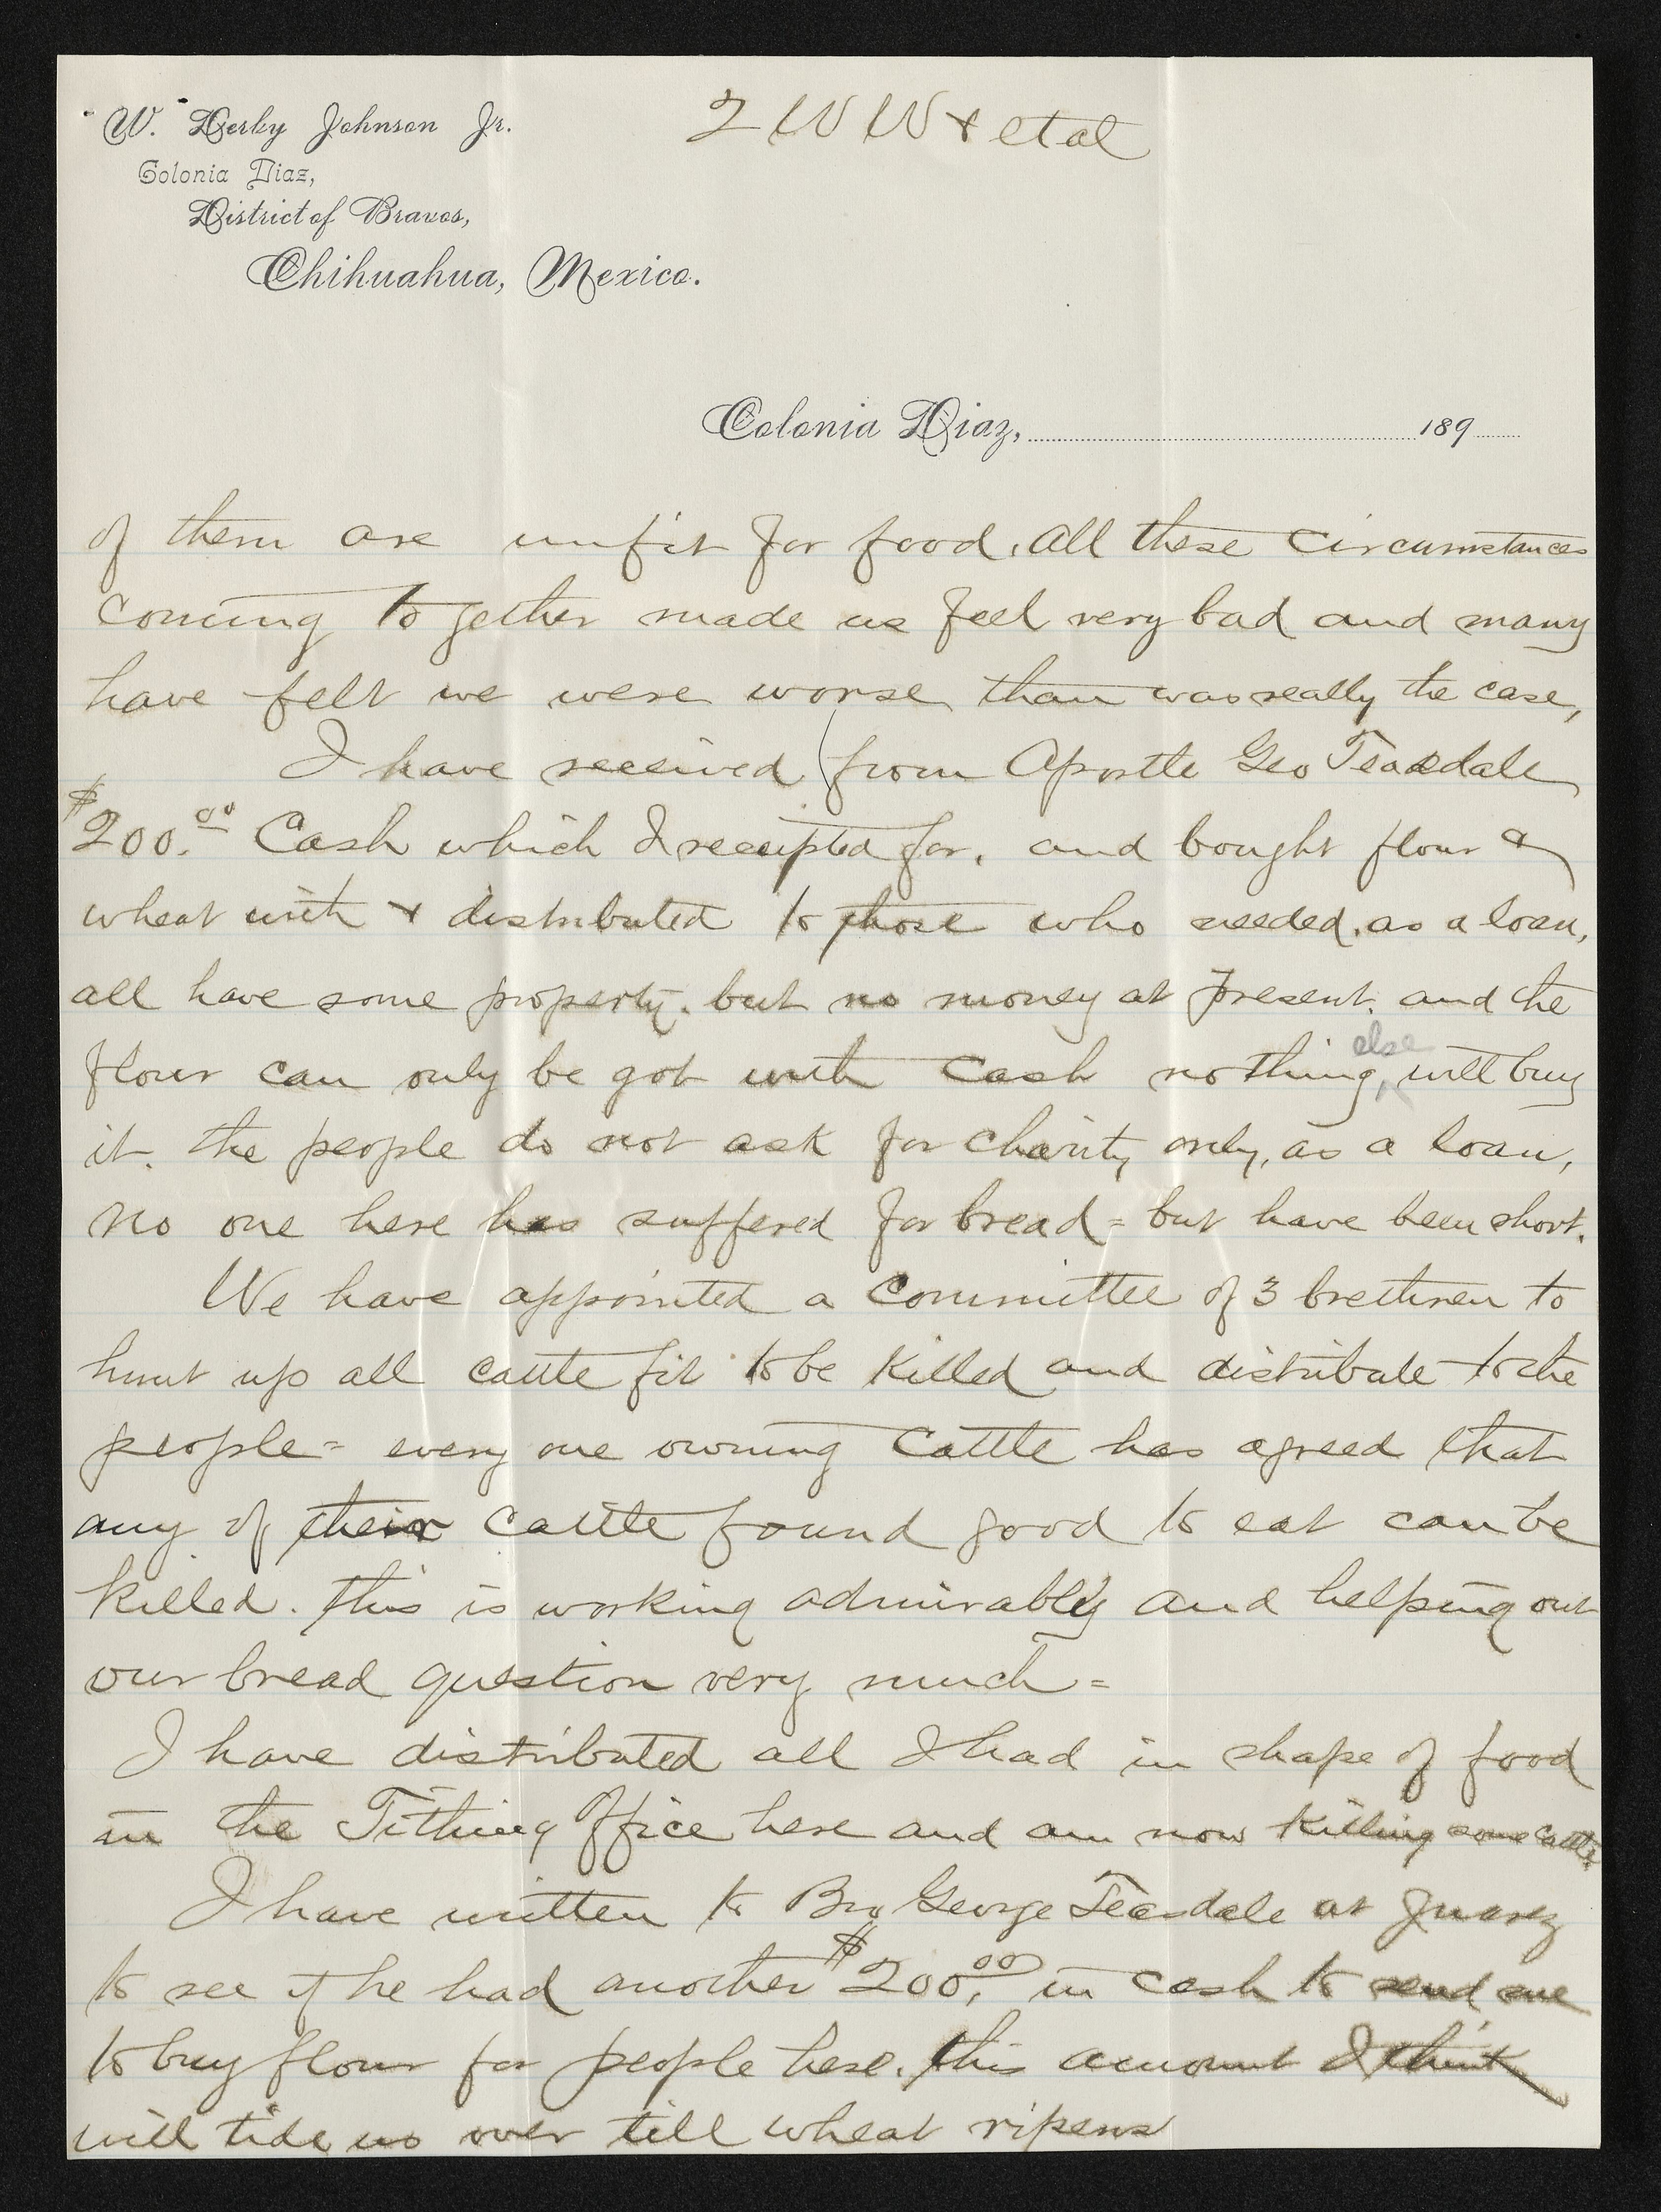 W. Derby Johnson Jr.
2 W W & etal
Colonia Diaz,
District of Bravos,
Chihuahua, Mexico.
Colonia Diaz, 189
of them are unfit for food. all these circumstances
coming together made us feel very bad and many
have felt we were worse than was really the case,
I have received from Apostle Geo Teasdale
$200.00 Cash which I receipted for, and bought flour &
wheat with & distributed to those who needed. as a loan,
all have some property. but no money at present. and the
flour can only be got with cash nothing else will buy
it. the people do not ask for charity only, as a loan,
No one here has suffered for bread = but have been short.
We have appointed a committee of 3 brethren to
hunt up all cattle fit to be killed and distribute to the
people = every one owning cattle has agreed that
any of their cattle found good to eat can be
killed. this is working admirably and helping out
our bread question very much =
I have distributed all I had in shape of food
in the Tithing Office here and am now killing some cattle.
I have written to Bro George Teasdale at Juarez
to see if he had another $200.00 in cash to send me
to buy flour for people here. this amount I think
will tide us over till wheat ripens